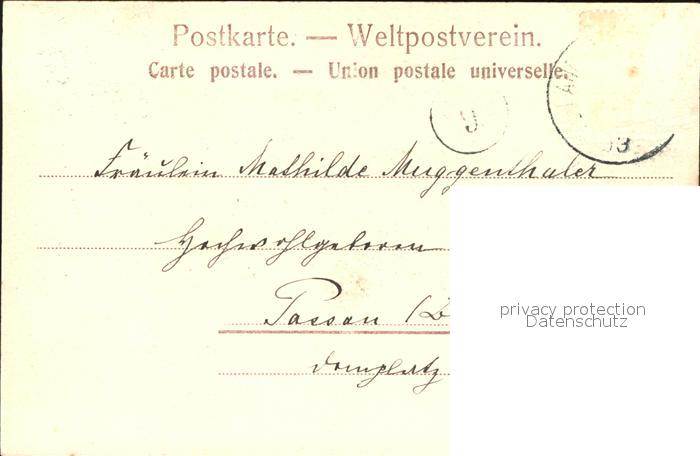 Postkarte. — Weltpostverein.
Carte postale. — Union postale universelle.
9
03
Fräulein Mathilde Muggenthaler
Hochwohlgeboren
Passau /B
Domplatz
privacy protection
Datenschutz